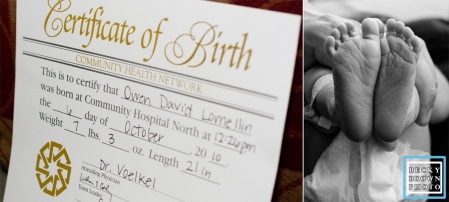 Certificate of Birth
COMMUNITY HEALTH NETWORK
This is to certify that Owen David Lomellin
was born at Community Hospital North at 12:26pm
the 6 day of October, 2010.
Weight 7 lbs. 3 oz. Length 21 in
Dr. Voelkel
Attending Physician
Team Leader
BECKY
BROWN
PHOTO